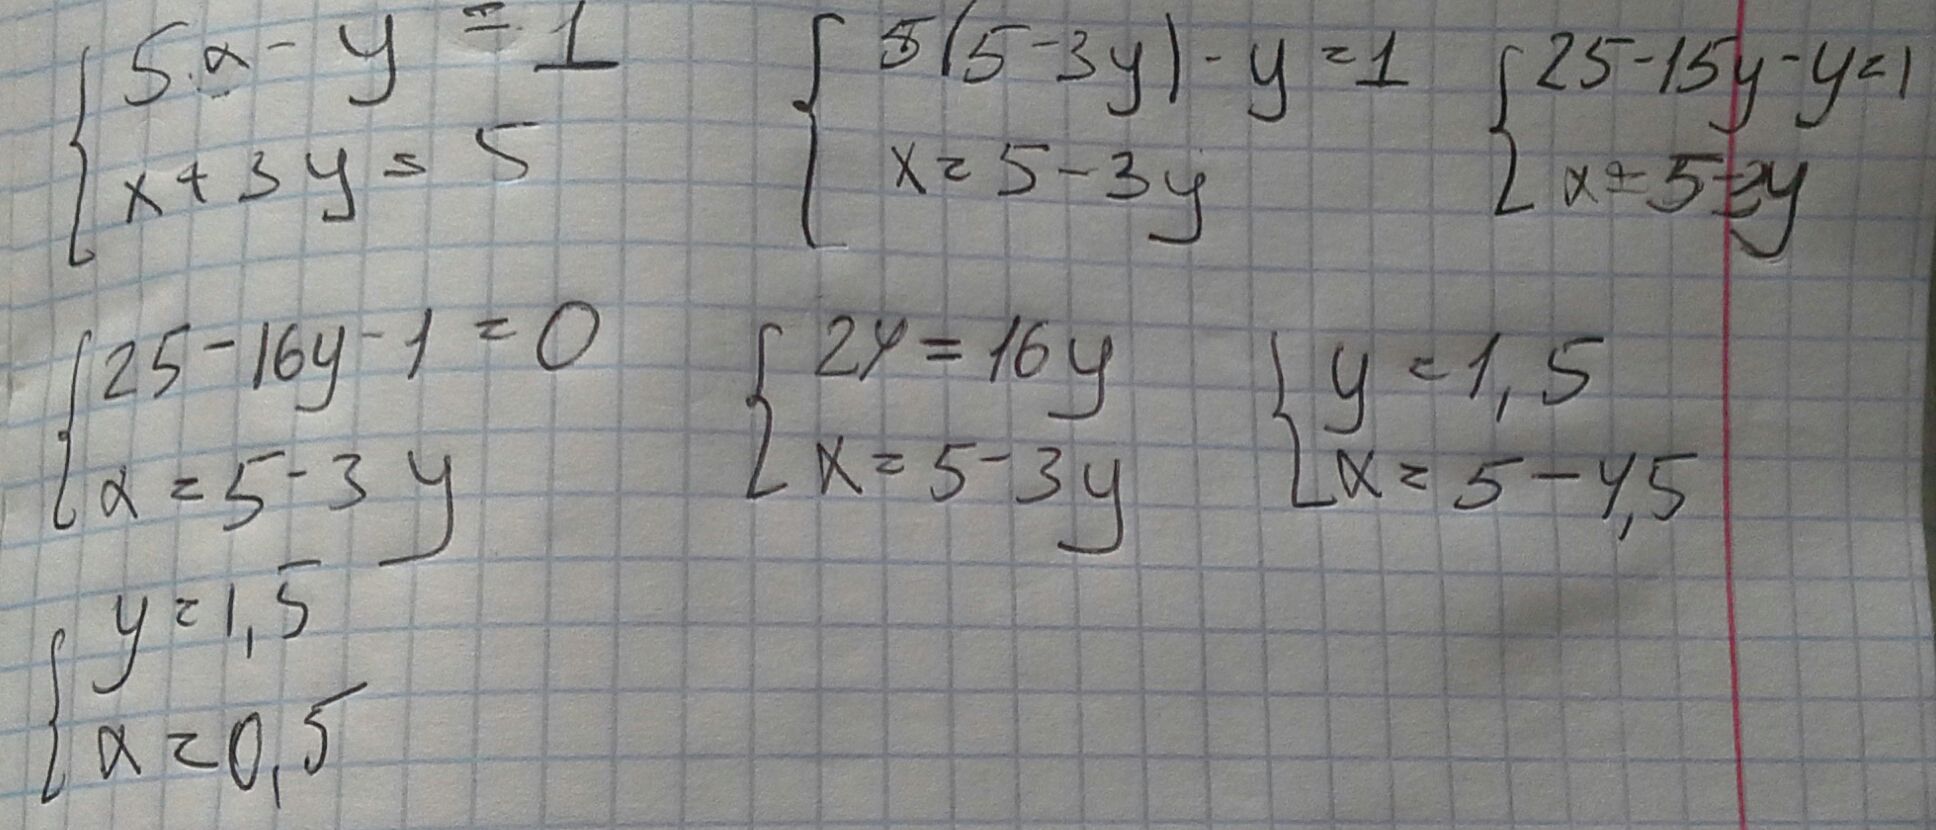 5x - y = 1
x + 3y = 5
5(5-3y) - y = 1
x = 5 - 3y
25 - 15y - y = 1
x = 5 - 3y
25 - 16y - 1 = 0
x = 5 - 3y
24 = 16y
x = 5 - 3y
y = 1,5
x = 5 - 4,5
y = 1,5
x = 0,5